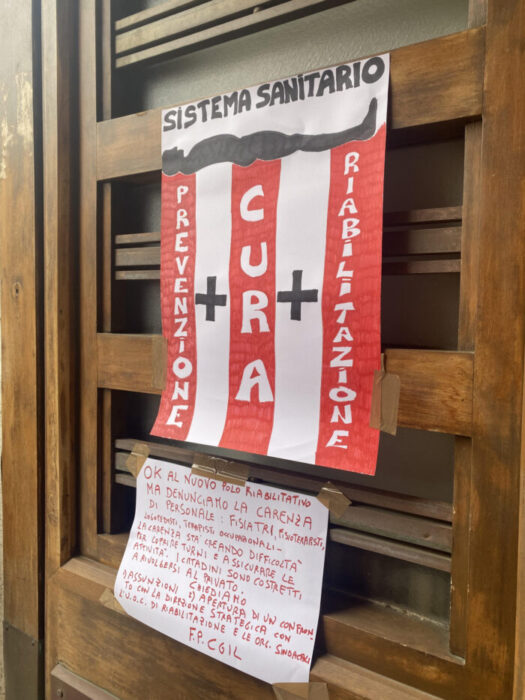 SISTEMA SANITARIO
PREVENZIONE
+
CURA
+
RIABILITAZIONE
OK AL NUOVO POLO RIABILITATIVO
MA DENUNCIAMO LA CARENZA
DI PERSONALE: FISIATRI, FISIOTERAPISTI,
LOGOPEDISTI, TERAPISTI OCCUPAZIONALI -
LA CARENZA STA' CREANDO DIFFICOLTA'
PER COPRIRE TURNI E ASSICURARE LE
ATTIVITA'. I CITTADINI SONO COSTRETTI
A RIVOLGERSI AL PRIVATO.
CHIEDIAMO
1) ASSUNZIONI 2) APERTURA DI UN CONFRON-
TO CON LA DIREZIONE STRATEGICA CON
L'U.O.C. DI RIABILITAZIONE E LE ORG. SINDACALI
F.P. CGIL